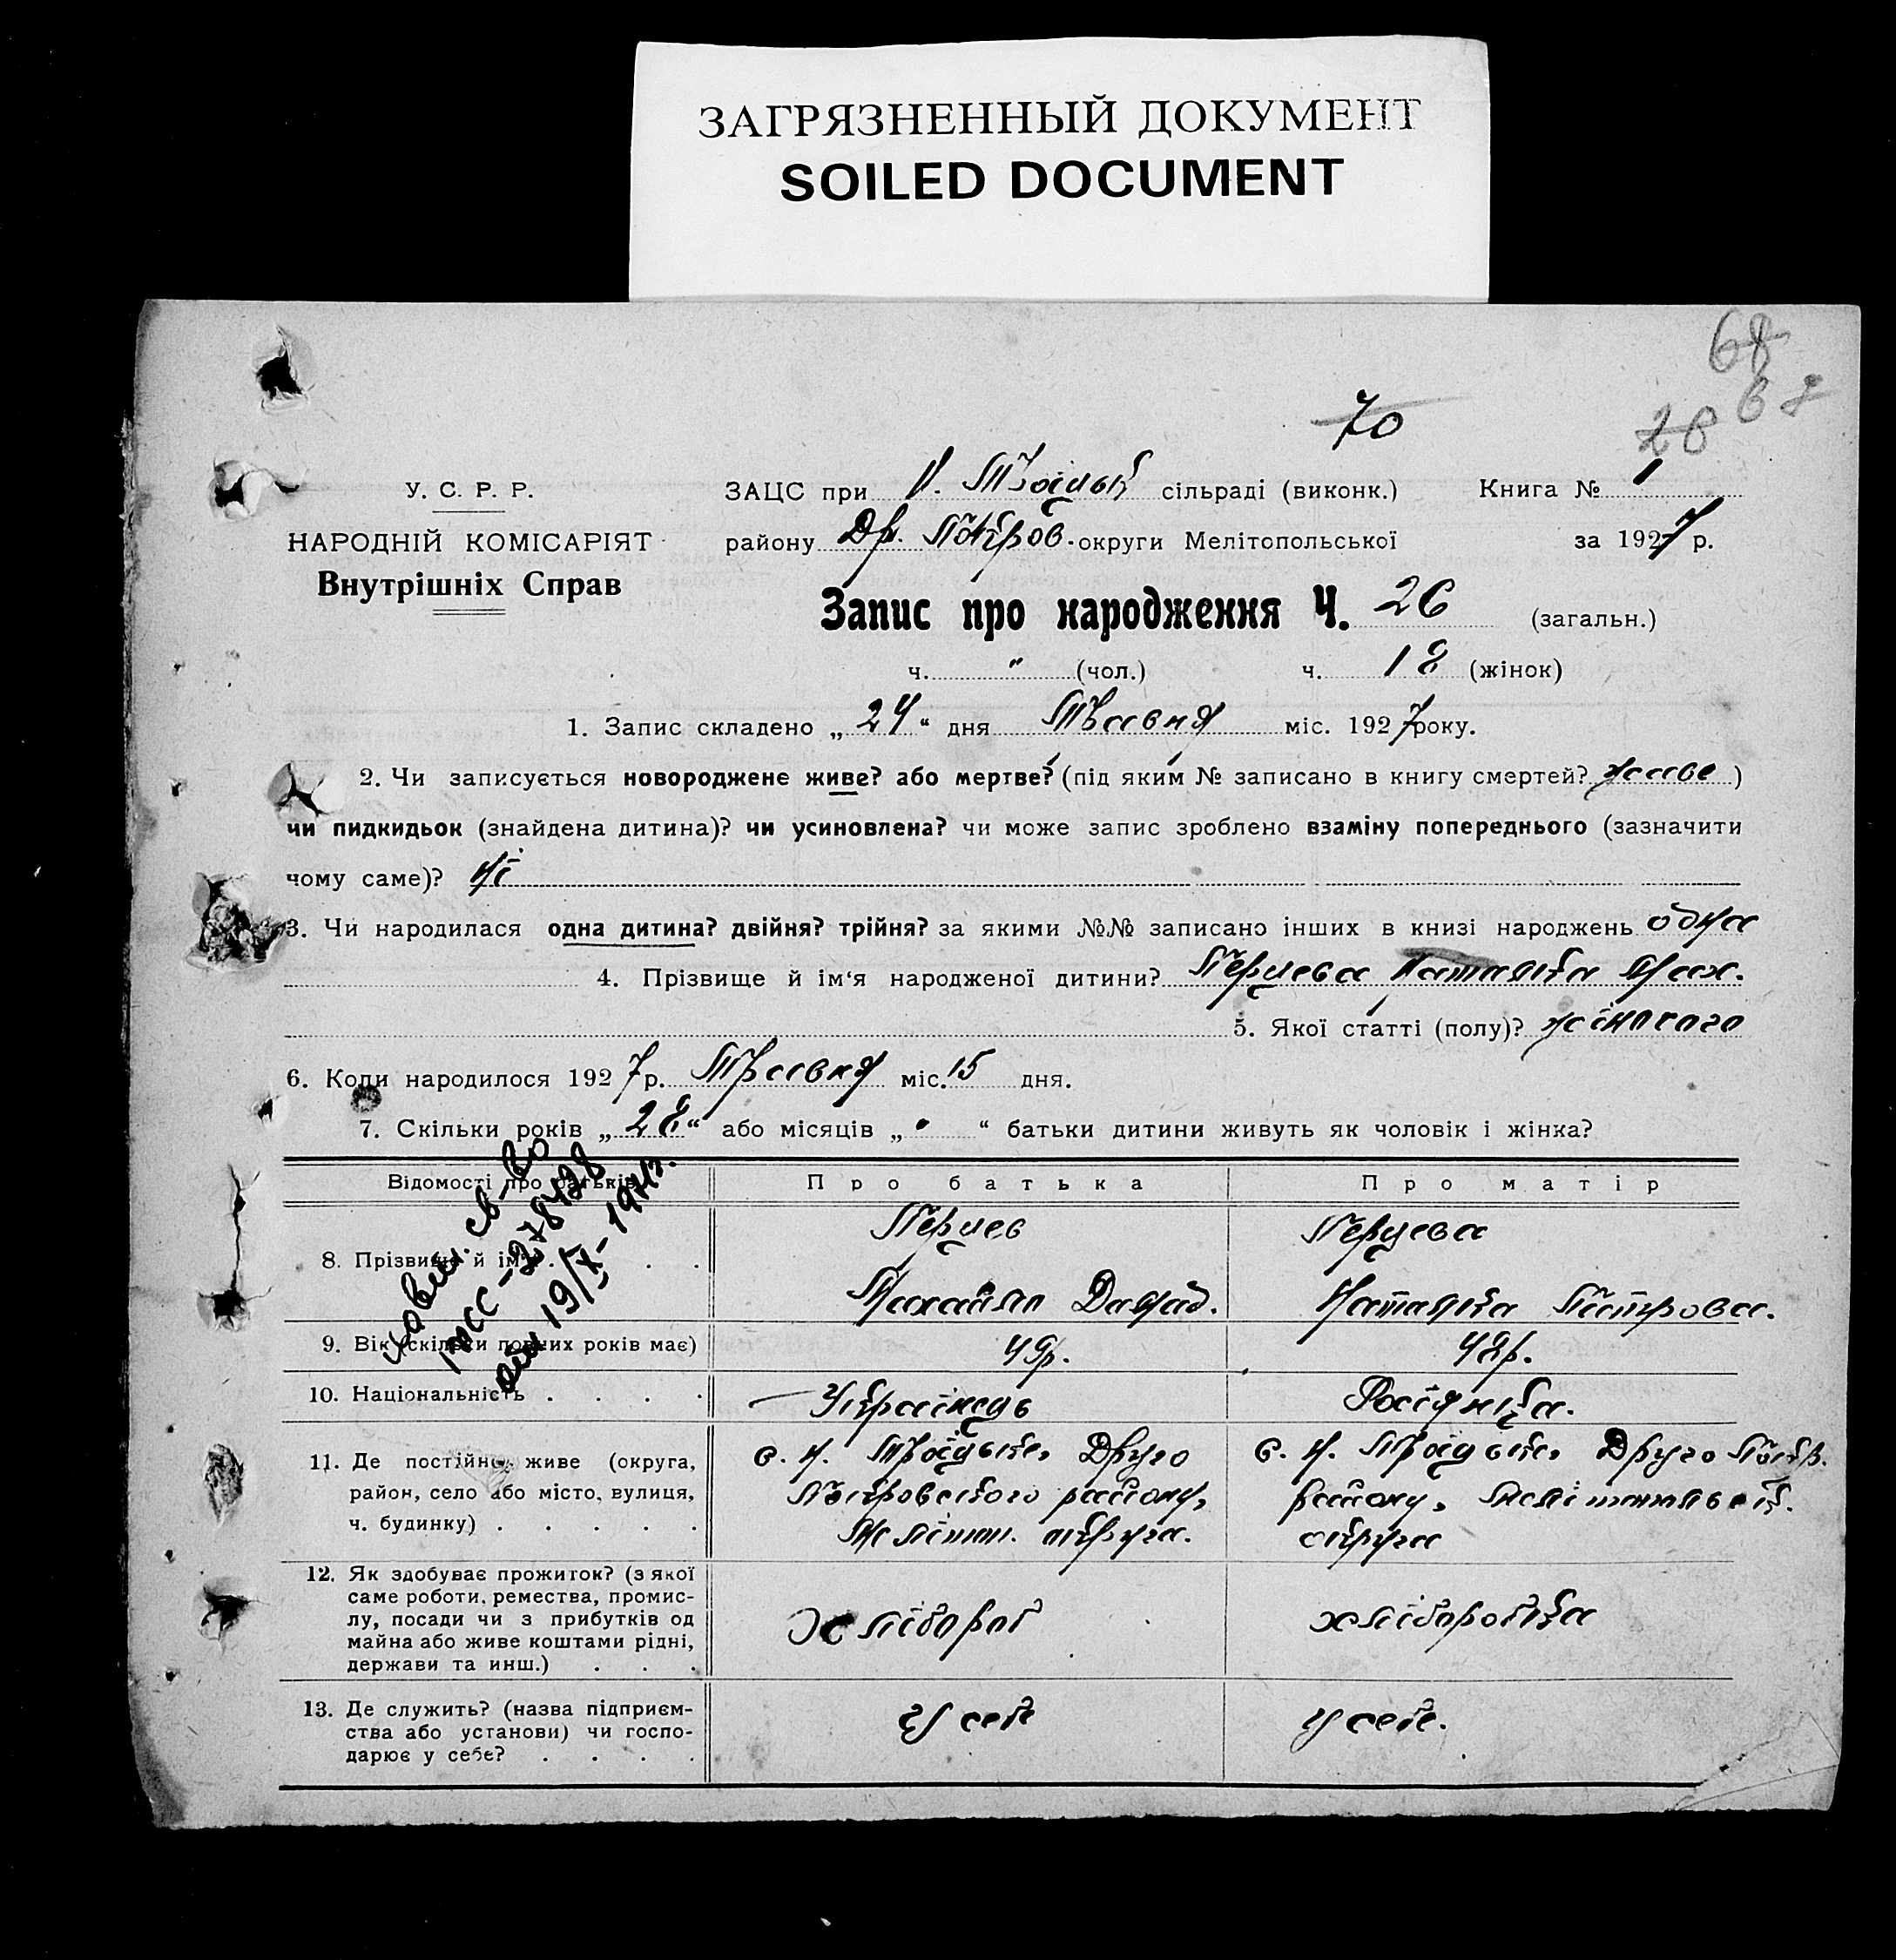 ЗАГРЯЗНЕННЫЙ ДОКУМЕНТ
SOILED DOCUMENT
68
67
28
70
У. С. Р. Р.
НАРОДНІЙ КОМІСАРІЯТ
Внутрішніх Справ
ЗАЦС при Н. Троіцькій сільраді (виконк.) Книга № 1
району Др. Покров. округи Мелітопольської за 1927 р.
Запис про народження Ч. 26 (загальн.)
ч. " (чол.) ч. 18 (жінок)
1. Запис складено „24“ дня Травня міс. 1927 року.
2. Чи записується новороджене живе? або мертве? (під яким № записано в книгу смертей? живе)
чи пидкидьок (знайдена дитина)? чи усиновлена? чи може запис зроблено взаміну попереднього (зазначити
чому саме)? ні
3. Чи народилася одна дитина? двійня? трійня? за якими №№ записано інших в книзі народжень одна
4. Прізвище й ім‘я народженої дитини? Перцева Наталка Мих.
5. Якої статті (полу)? жіночого
6. Коли народилося 1927 р. Травня міс. 15 дня.
7. Скільки років „28“ або місяців „ “ батьки дитини живуть як чоловік і жінка?
Відомості про батьків
Про батька
Про матір
8. Прізвище й ім‘я
Перцев
Перцева
Михайло Давид.
Наталка Питрова.
9. Вік (скільки повних років має)
49р.
48р.
10. Національність
Украінець
Росіянка.
11. Де постійно живе (округа,
район, село або місто, вулиця,
ч. будинку)
с. Н. Троіцьке, Друго
Покровського району,
Меліт. округа.
с. Н. Троіцьке, Друго Покр.
району, Мелітопольськ.
округа
12. Як здобуває прожиток? (з якої
саме роботи, ремества, промис-
лу, посади чи з прибутків од
майна або живе коштами рідні,
держави та инш.)
Хлібороб
хліборобка
13. Де служить? (назва підприєм-
ства або установи) чи госпо-
дарює у себе?
У себе
У себе.
св-во
278428
19/X-